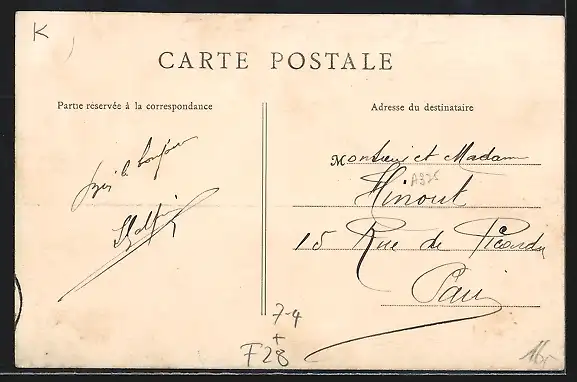 K
CARTE POSTALE
Partie réservée à la correspondance
Adresse du destinataire
Monsieur et Madame
A325
Hinout
15 Rue de Picardie
Paris
7-4
+
F28
16,-